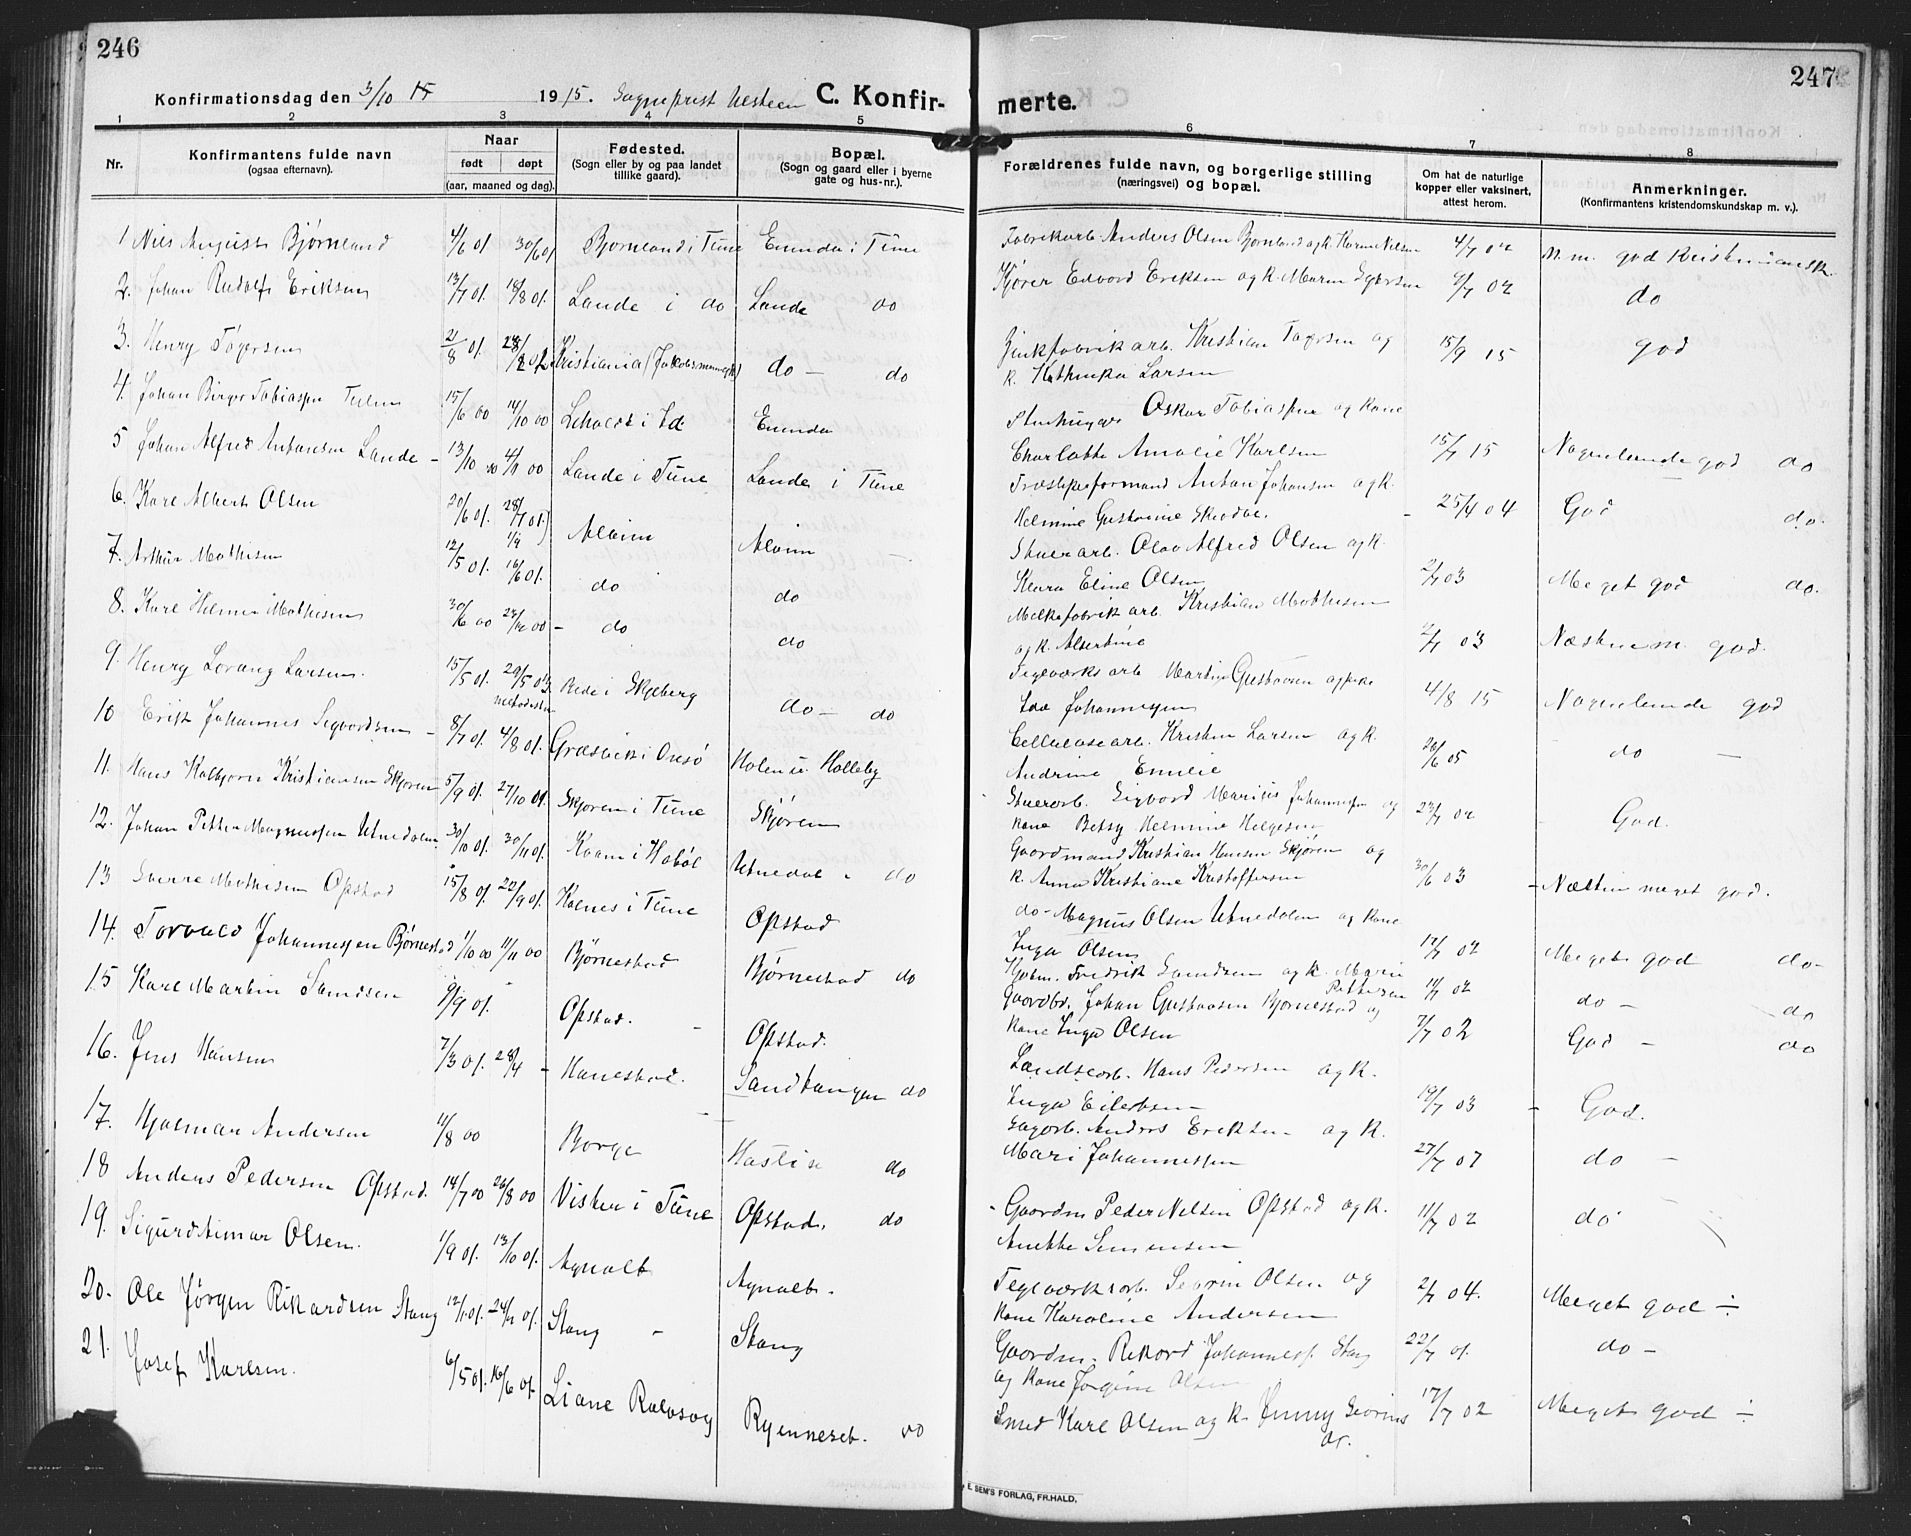 246
Konfirmationsdag den 3/10 15 1915. Sogneprest C. Konfir-
1 2 3 4 5
Nr. Konfirmantens fulde navn (ogsaa efternavn). Naar født døpt (aar, maaned og dag). Fødested. (Sogn eller by og paa landet tillike gaard). Bopæl. (Sogn og gaard eller i byerne gate og hus-nr.).
1 Nils August Bjørnland 4/6 01 30/6 01 Bjørnland i Tune Enenda i Tune
2. Johan Rudolf Eriksen 13/7 01. 18/8 01. Lande i do Lande do
3. Henry Tøgersen 2/8 01. Kristiania do — do
4. Johan Birger Tobiassen 15/6 00 14/10 00 i Id. Enenda
5 Johan Alfred Antonsen Lande – 13/10 00 4/11 00 Lande i Tune Lande i Tune
6. Karl Albert Olsen 20/6 01. 28/7 01. Alvim Alvim
7. Arthur Mathisen 12/5 01. 16/6 01. do do
8. Karl Helmer Mathisen 30/6 00 23/12 00 – do do
9. Henry Lorang Larsen. 15/5 01. 20/5 03 metodisten Rede i Skjeberg do — do
10 Erik Johannes Sigvardsen – 8/7 01. 4/8 01. Græsvik i Onsø Holen i Holleby
11. Hans Kolbjørn Kristiansen Skjøren 5/9 01. 27/10 01. Skjøren i Tune Skjøren
12. Johan Petter Magnussen Utnedalen 30/10 01. 30/11 01. Kvam i Hobøl Utnedal do
13 Sverre Mathisen Opstad 15/8 01. 22/9 01. Kalnes i Tune Opstad
14. Torvald Johannessen Bjørnestad 1/10 00 11/11 00 Bjørnestad Bjørnestad do
15 Karl Martin 9/9 01. Opstad. Opstad.
16. Jens Hansen 7/3 01. 28/4 – Hanestad. Sandtangen do
17. Hjalmar Andersen 11/8 00 Borge Haslie do
18 Anders Pedersen Opstad. 14/7 00 26/8 00 Visten i Tune Opstad. do
19. Sigurd Aimar Olsen. 1/9 01. 13/10 01. Agnalt Agnalt.
20. Ole Jørgen Rikardsen Stang 12/1 01. 24/11 01. Stang Stang
21. Josef Karlsen. 6/5 01. 16/6 01. Liane Rolvsøy Ryenneset. do
247
merte.
6 7 8
Forældrenes fulde navn, og borgerlige stilling (næringsvei) og bopæl. Om hat de naturlige kopper eller vaksinert, attest herom. Anmerkninger. (Konfirmantens kristendomskundskap m. v.).
Fabrikarb. Anders Olsen Bjørnland og k. Karen Nilsen 4/7 02 M. m. god Kristendomsk.
Kjører Edvard Eriksen og k. Maren 9/7 02 do
Zinkfabrikarb. Kristian Tøgersen og 15/9 15 god
k. Kathinka Larsen
Stenhugger Oskar Tobiassen og kone
Charlotte Amalie Karlsen 15/7 15 Nogenlunde god do
Træsliperformand Anton Johansen og k.
Helmine Gustavine 25/4 04 God do.
Stuerarb. Olav Alfred Olsen og k.
Klara Eline Olsen 2/7 03 Meget god do.
Melkefabrikarb. Kristian Mathisen
og k. Albertine 2/7 03 Næsten m. god.
Teglverksarb. Martin Gustavsen og kone
Lea Johannessen 4/8 15 Nogenlunde god
Cellulosearb. Kristen Larsen og k.
Andrine Emelie 20/6 05 do
Stuerarb. Sigvard Marius Johannessen og
kone Betsy Helmine Helgesen 23/7 02 God.
Gaardmand Kristian Hansen Skjøren og
k. Anna Kristiane Kristoffersen 30/6 03 – Næsten meget god.
do – Magnus Olsen Utnedalen og kone
Inga Olsen 12/7 02 Meget god do –
Fredrik og k. Marie Pettersen 11/7 02 do – do
Gaardbr. Johan Gustavsen Bjørnestad og
kone Inga Olsen 7/7 02 God – do
Landsarb. Hans Pedersen og k.
Inga Eilertsen 19/7 03 – God.
Sagarb. Anders Eriksen og k.
Mari Johannessen 27/7 07 do –
– Gaardm Peder Nilsen Opstad og k. 11/7 02 do
Anette Simensen
Teglværksarb. Severin Olsen og 2/7 04. Meget god ÷
kone Karoline Andersen
Gaardm. Rikard Johanness. Stang 22/7 01. do –
og kone Jørgine Olsen
Smed Karl Olsen og k. Jenny Severinsdr. 17/7 02 Meget god ÷
E. SEM'S FORLAG, FR.HALD.